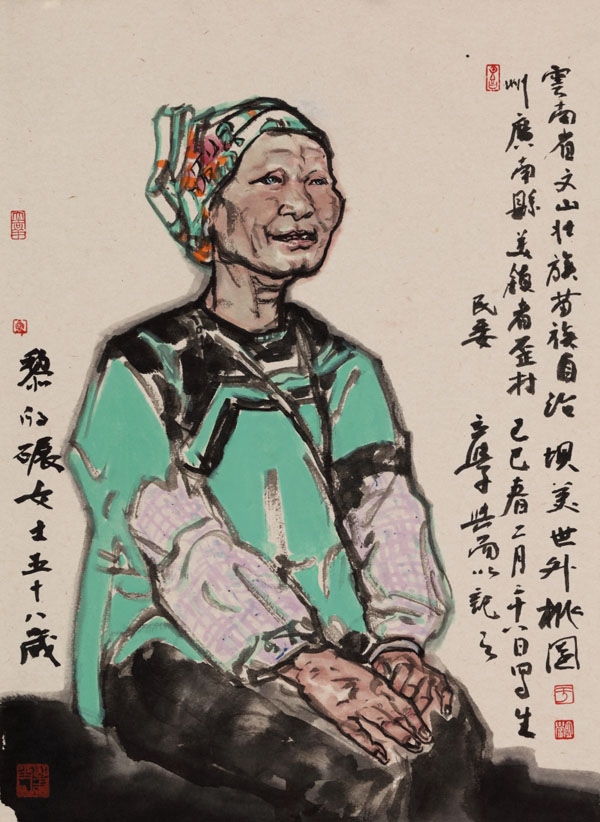 雲南省文山壮族苗族自治 坝美世外桃园
州廣南縣美鎮者歪村 己巳春二月二十八日写生
民委
記之
黎的碾女士五十八歲